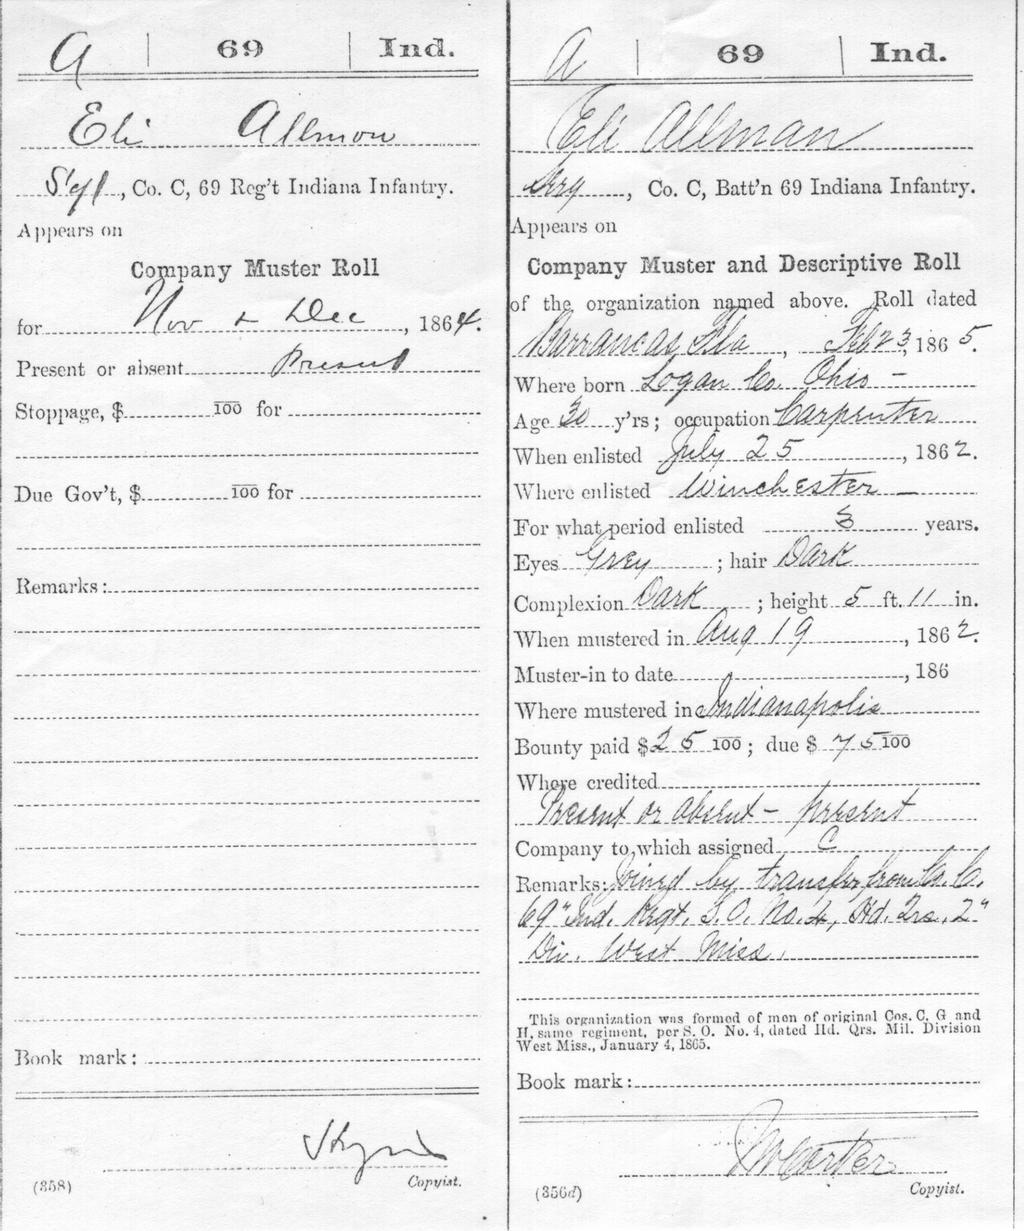 A | 69 | Ind.
Eli Allmon
Serg't, Co. C, 69 Reg't Indiana Infantry.
Appears on
Company Muster Roll
for Nov & Dec, 1864.
Present or absent Present
Stoppage, $ 100 for
Due Gov't, $ 100 for
Remarks:
Book mark:
(358)
Copyist.
A | 69 | Ind.
Eli Allman
Serg, Co. C, Batt'n 69 Indiana Infantry.
Appears on
Company Muster and Descriptive Roll
of the organization named above. Roll dated
Barrancas Fla, Feb 23, 1865.
Where born Logan Co. Ohio –
Age 30 y'rs; occupation Carpenter
When enlisted July 25, 1862.
Where enlisted Winchester –
For what period enlisted 3 years.
Eyes Grey; hair Dark
Complexion Dark; height 5 ft. 11 in.
When mustered in Aug 19, 1862.
Muster-in to date, 186
Where mustered in Indianapolis
Bounty paid $ 25 100; due $ 75 100
Where credited
Present or absent – present
Company to which assigned C
Remarks: Joined by transfer from Co. C.
69" Ind. Regt. S.O. No. 4, Hd. Qrs. 2"
Div. West Miss.
This organization was formed of men of original Cos. C, G and
H, same regiment, per S. O. No. 4, dated Hd. Qrs. Mil. Division
West Miss., January 4, 1865.
Book mark:
Carter
(356d)
Copyist.